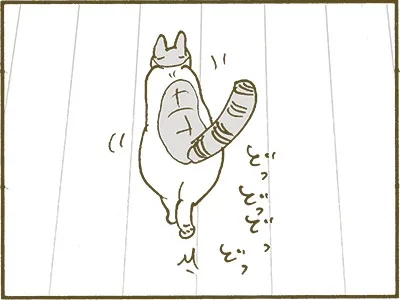 どっ
どっ
どっ
どっ